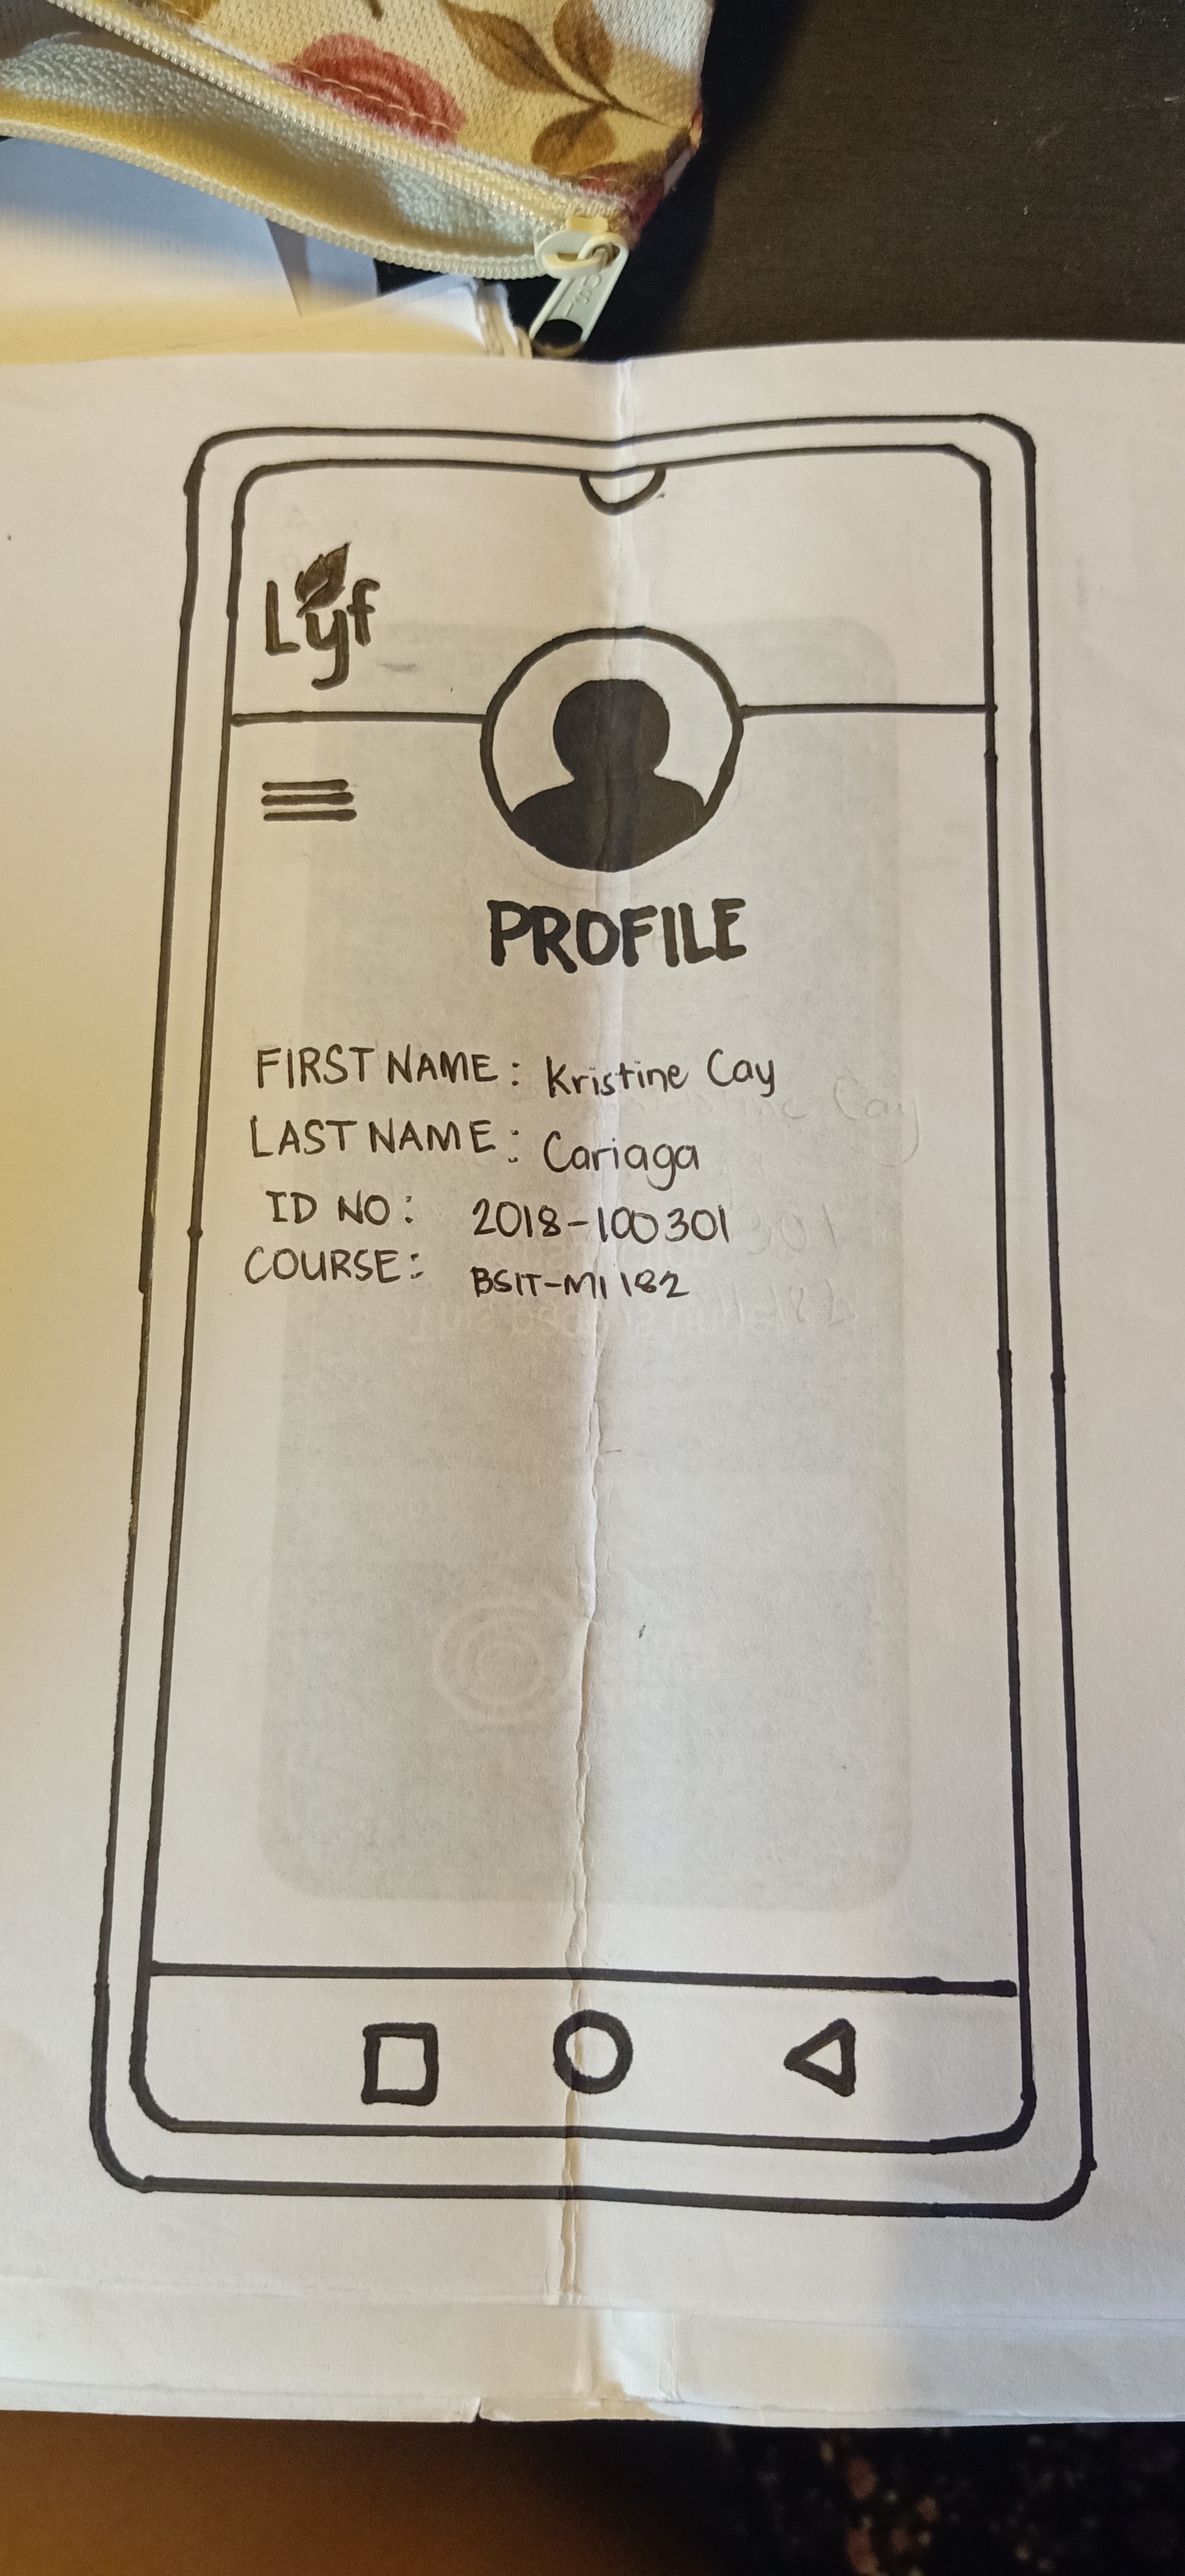 Lyf
PROFILE
FIRST NAME: Kristine Cay
LAST NAME: Cariaga
ID NO: 2018-100301
COURSE: BSIT-MI 182